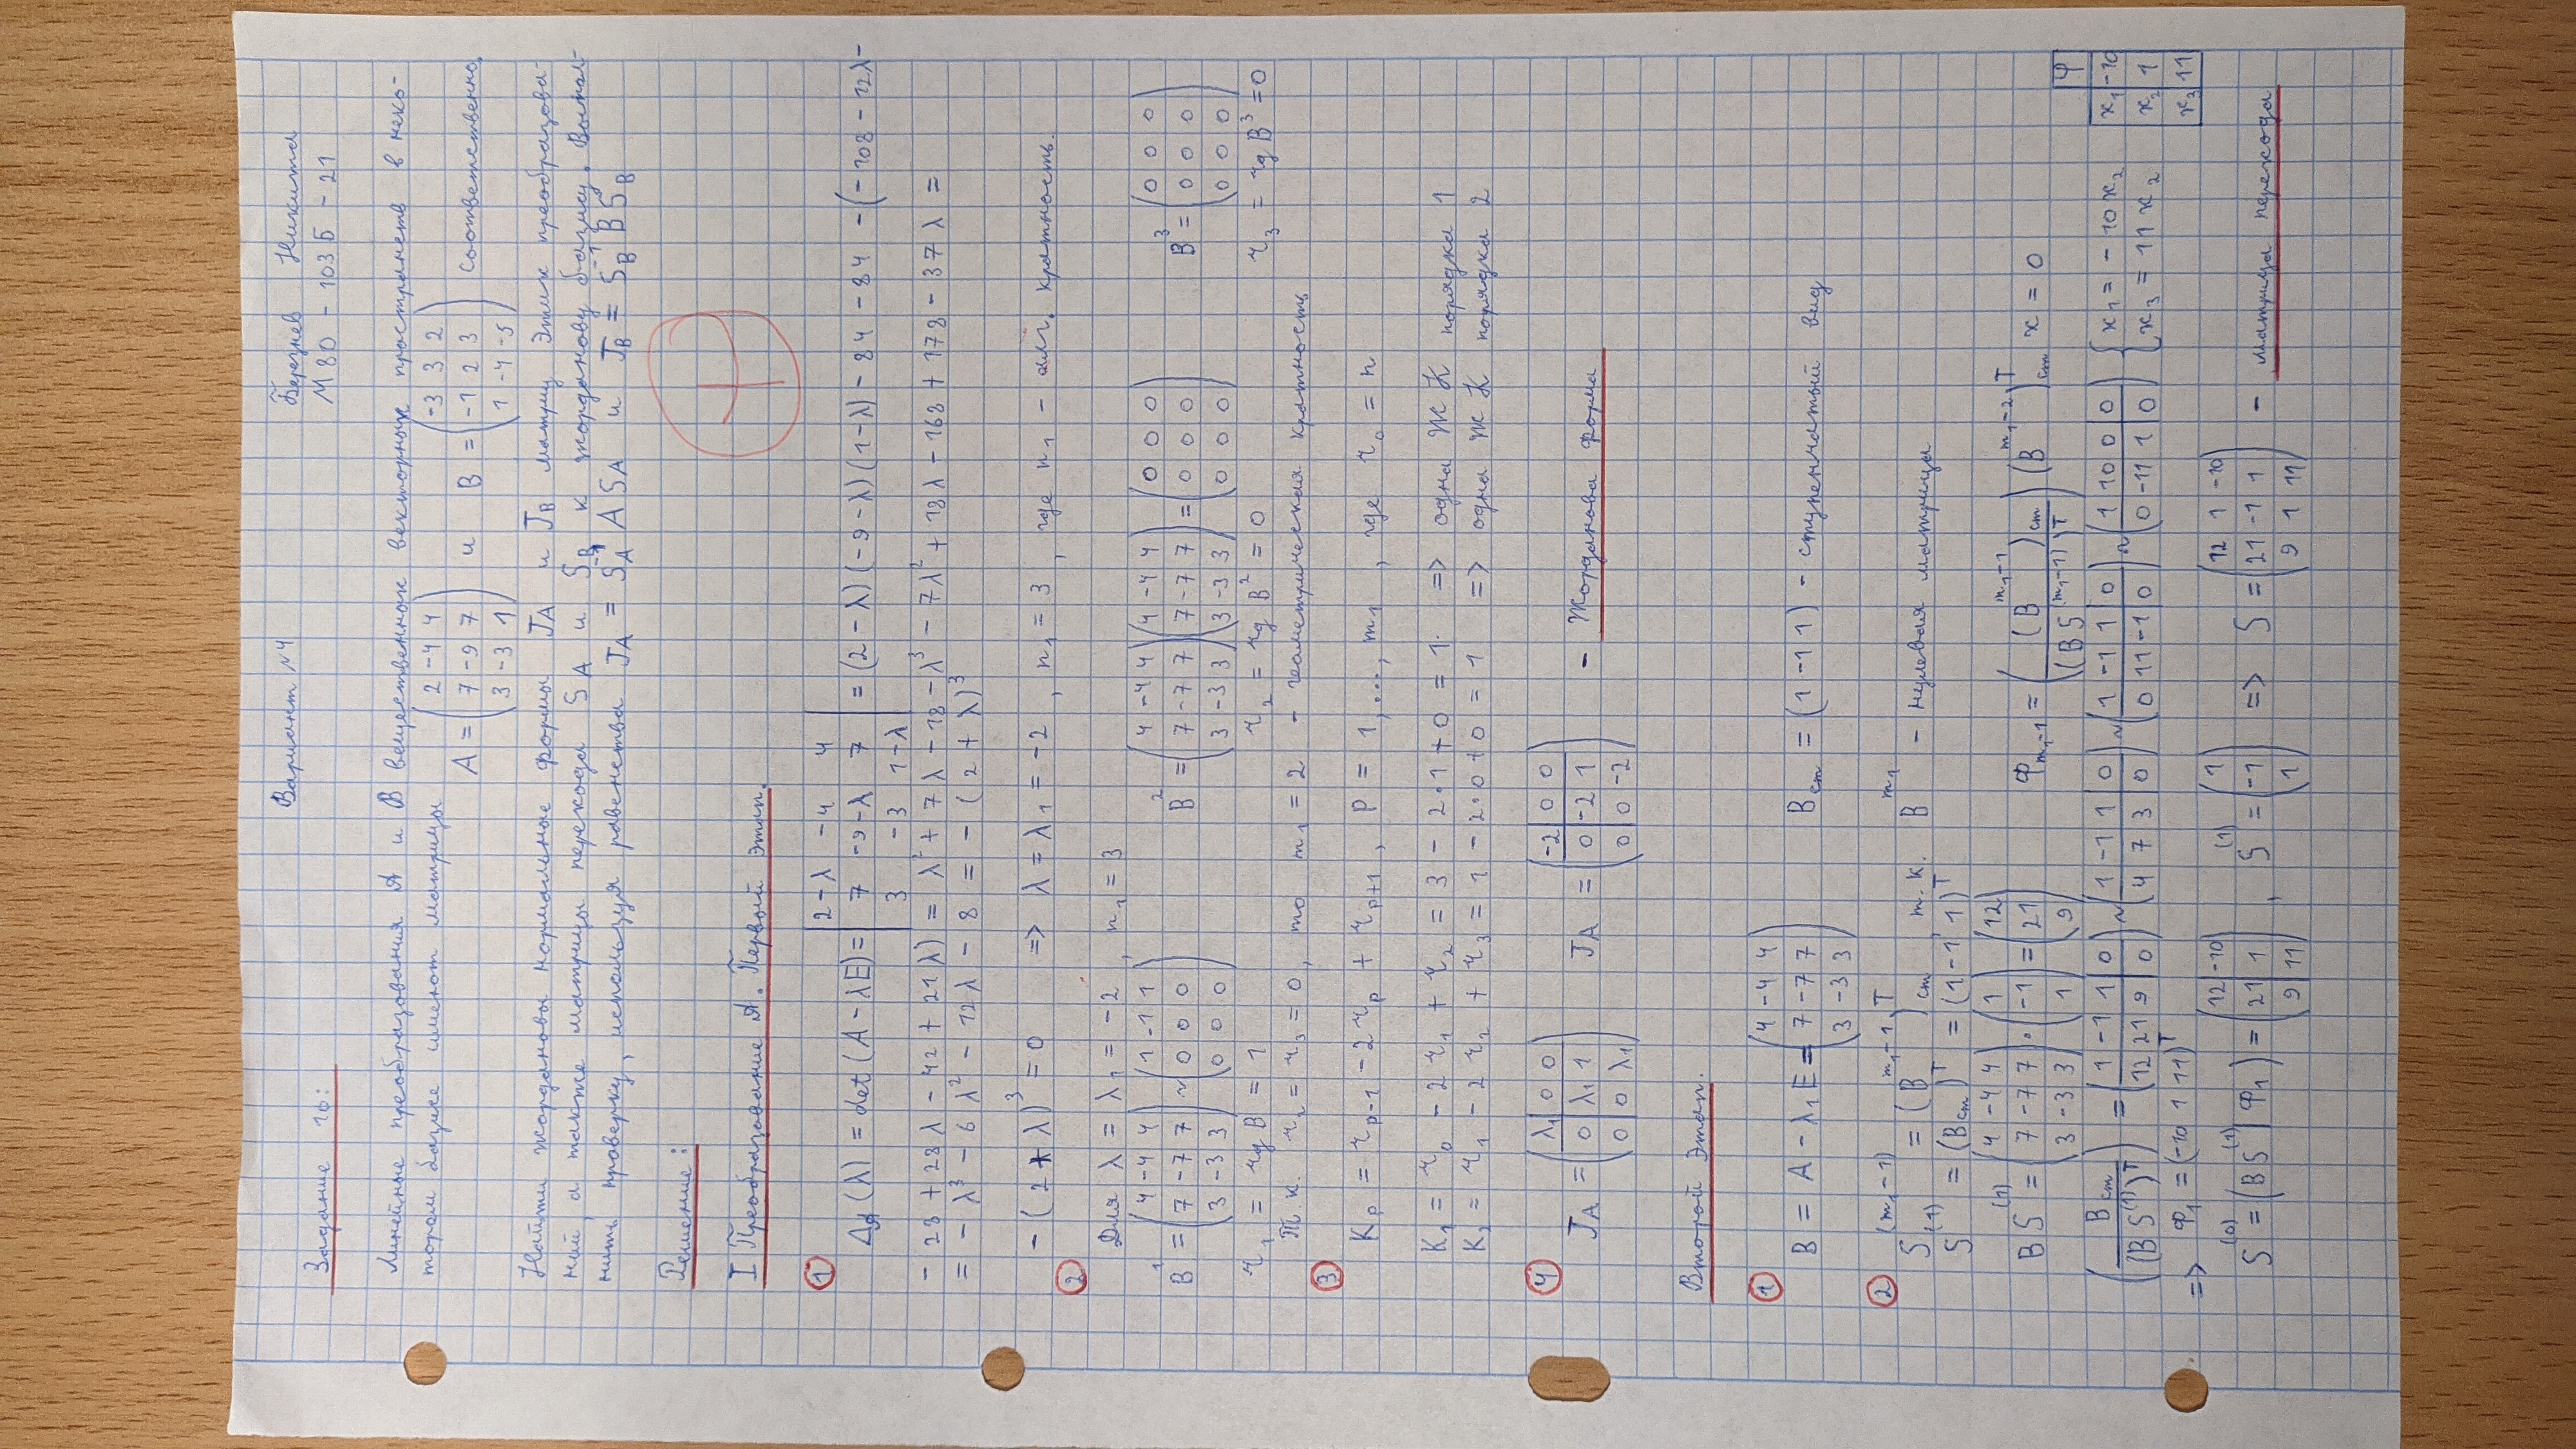 Вариант №4 Березнев Никита
Задание 16: М80 - 103Б - 21
Линейные преобразования A и B вещественных векторных пространств в неко-
тором базисе имеют матрицы A = (2 -4 4; 7 -9 7; 3 -3 1) и B = (-3 3 2; -1 2 3; 1 -4 -5) соответственно.
Найти жордановы нормальные формы J_A и J_B матриц этих преобразова-
ний, а также матрицы перехода S_A и S_B к жорданову базису. Выпол-
нить проверку, используя равенства J_A = S_A^-1 A S_A и J_B = S_B^-1 B S_B
Решение:
I Преобразование A. Первый этап.
1
Δ_A(λ) = det(A - λE) = |2-λ -4 4; 7 -9-λ 7; 3 -3 1-λ| = (2-λ)(-9-λ)(1-λ) - 84 - 84 - (-108 - 12λ -
- 28 + 28λ - 42 + 21λ) = λ² + 7λ - 18 - λ³ - 7λ² + 18λ - 168 + 178 - 37λ =
= - λ³ - 6λ² - 12λ - 8 = - (2 + λ)³
- (2 + λ)³ = 0 => λ = λ₁ = -2, n₁ = 3, где n₁ - алг. кратность.
2
Для λ = λ₁ = -2, n₁ = 3
B¹ = (4 -4 4; 7 -7 7; 3 -3 3) ~ (1 -1 1; 0 0 0; 0 0 0) B² = (4 -4 4; 7 -7 7; 3 -3 3)(4 -4 4; 7 -7 7; 3 -3 3) = (0 0 0; 0 0 0; 0 0 0) B³ = (0 0 0; 0 0 0; 0 0 0)
r₁ = rg B = 1 r₂ = rg B² = 0 r₃ = rg B³ = 0
Т.к. r₂ = r₃ = 0, то m₁ = 2 - геометрическая кратность
3
K_p = r_p-1 - 2r_p + r_p+1, p = 1, ..., m₁, где r₀ = n
K₁ = r₀ - 2r₁ + r₂ = 3 - 2·1 + 0 = 1 => одна ЖК порядка 1
K₂ = r₁ - 2r₂ + r₃ = 1 - 2·0 + 0 = 1 => одна ЖК порядка 2
4
J_A = (λ₁ 0 0; 0 λ₁ 1; 0 0 λ₁) J_A = (-2 0 0; 0 -2 1; 0 0 -2) - Жорданова форма
Второй этап.
1
B = A - λ₁E = (4 -4 4; 7 -7 7; 3 -3 3) B_ст = (1 -1 1) - ступенчатый вид
2
S^(m₁-1) = (B^m₁-1)^T_ст, т.к. B^m₁ - нулевая матрица
S^(1) = (B_ст)^T = (1 -1 1)^T
BS^(1) = (4 -4 4; 7 -7 7; 3 -3 3)·(1; -1; 1) = (12; 21; 9) Φ_m₁-1 = ((B^m₁-1)_ст / (BS^(m₁-1))^T)(B^m₁-2)^T_ст x = 0
(B_ст / (BS^(1))^T) = (1 -1 1 0; 12 21 9 0) ~ (1 -1 1 0; 4 7 3 0) ~ (1 -1 1 0; 0 11 -1 0) ~ (1 10 0 0; 0 -11 1 0) {x₁ = -10x₂; x₃ = 11x₂ φ x₁ -10 x₂ 1 x₃ 11
=> Φ₁ = (-10 1 11)^T
S^(0) = (BS^(1) | Φ₁) = (12 -10; 21 1; 9 11), S^(1) = (1; -1; 1) => S = (12 1 -10; 21 -1 1; 9 1 11) - матрица перехода